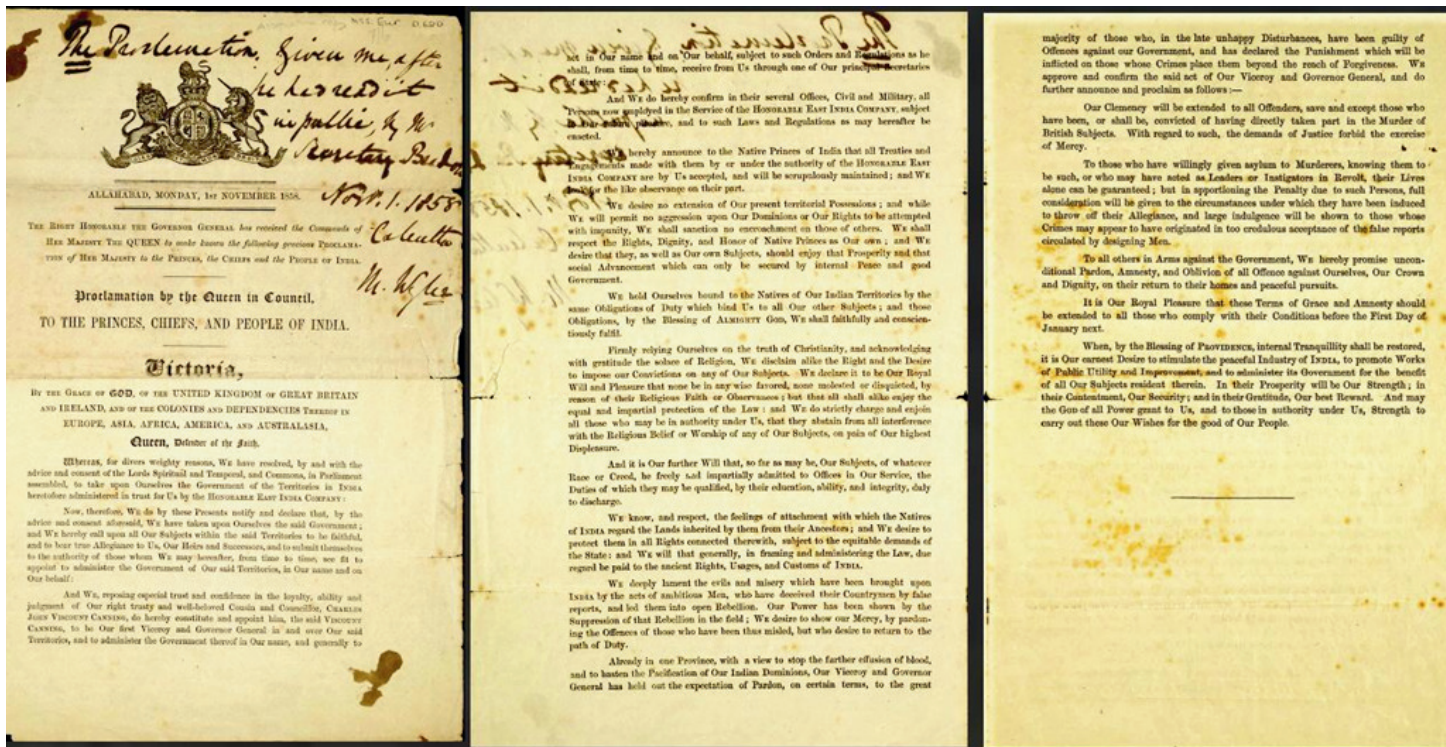 The Proclamation, Given me, after
he has read it
in public, by Mr
Secretary
Novr. 1. 1858
Calcutta
ALLAHABAD, MONDAY, 1ST NOVEMBER 1858.
THE RIGHT HONORABLE THE GOVERNOR GENERAL has received the Commands of
HER MAJESTY THE QUEEN to make known the following gracious PROCLAMA-
TION of HER MAJESTY to the PRINCES, the CHIEFS and the PEOPLE OF INDIA.
Proclamation by the Queen in Council,
TO THE PRINCES, CHIEFS, AND PEOPLE OF INDIA.
Victoria,
BY THE GRACE OF GOD, OF THE UNITED KINGDOM OF GREAT BRITAIN
AND IRELAND, AND OF THE COLONIES AND DEPENDENCIES THEREOF IN
EUROPE, ASIA, AFRICA, AMERICA, AND AUSTRALASIA,
Queen, Defender of the Faith.
Whereas, for divers weighty reasons, WE have resolved, by and with the
advice and consent of the Lords Spiritual and Temporal, and Commons, in Parliament
assembled, to take upon Ourselves the Government of the Territories in INDIA
heretofore administered in trust for Us by the HONORABLE EAST INDIA COMPANY:
Now, therefore, WE do by these Presents notify and declare that, by the
advice and consent aforesaid, WE have taken upon Ourselves the said Government;
and WE hereby call upon all Our Subjects within the said Territories to be faithful,
and to bear true Allegiance to Us, Our Heirs and Successors, and to submit themselves
to the authority of those whom WE may hereafter, from time to time, see fit to
appoint to administer the Government of Our said Territories, in Our name and on
Our behalf:
And WE, reposing especial trust and confidence in the loyalty, ability and
judgment of Our right trusty and well-beloved Cousin and Councillor, CHARLES
JOHN VISCOUNT CANNING, do hereby constitute and appoint him, the said VISCOUNT
CANNING, to be Our first Viceroy and Governor General in and over Our said
Territories, and to administer the Government thereof in Our name, and generally to
act in Our name and on Our behalf, subject to such Orders and Regulations as he
shall, from time to time, receive from Us through one of Our principal Secretaries
of State:
And WE do hereby confirm in their several Offices, Civil and Military, all
Persons now employed in the Service of the HONORABLE EAST INDIA COMPANY, subject
to Our future pleasure, and to such Laws and Regulations as may hereafter be
enacted.
We hereby announce to the Native Princes of India that all Treaties and
Engagements made with them by or under the authority of the HONORABLE EAST
INDIA COMPANY are by Us accepted, and will be scrupulously maintained; and WE
look for the like observance on their part.
WE desire no extension of Our present territorial Possessions; and while
WE will permit no aggression upon Our Dominions or Our Rights to be attempted
with impunity, WE shall sanction no encroachment on those of others. WE shall
respect the Rights, Dignity, and Honor of Native Princes as Our own; and WE
desire that they, as well as Our own Subjects, should enjoy that Prosperity and that
social Advancement which can only be secured by internal Peace and good
Government.
WE hold Ourselves bound to the Natives of Our Indian Territories by the
same Obligations of Duty which bind Us to all Our other Subjects; and those
Obligations, by the Blessing of ALMIGHTY GOD, WE shall faithfully and conscien-
tiously fulfil.
Firmly relying Ourselves on the truth of Christianity, and acknowledging
with gratitude the solace of Religion, WE disclaim alike the Right and the Desire
to impose our Convictions on any of Our Subjects. WE declare it to be Our Royal
Will and Pleasure that none be in any wise favored, none molested or disquieted, by
reason of their Religious Faith or Observances; but that all shall alike enjoy the
equal and impartial protection of the Law: and WE do strictly charge and enjoin
all those who may be in authority under Us, that they abstain from all interference
with the Religious Belief or Worship of any of Our Subjects, on pain of Our highest
Displeasure.
And it is Our further Will that, so far as may be, Our Subjects, of whatever
Race or Creed, be freely and impartially admitted to Offices in Our Service, the
Duties of which they may be qualified, by their education, ability, and integrity, duly
to discharge.
WE know, and respect, the feelings of attachment with which the Natives
of INDIA regard the Lands inherited by them from their Ancestors; and WE desire to
protect them in all Rights connected therewith, subject to the equitable demands of
the State: and WE will that generally, in framing and administering the Law, due
regard be paid to the ancient Rights, Usages, and Customs of INDIA.
WE deeply lament the evils and misery which have been brought upon
INDIA by the acts of ambitious Men, who have deceived their Countrymen by false
reports, and led them into open Rebellion. Our Power has been shown by the
Suppression of that Rebellion in the field; WE desire to show our Mercy, by pardon-
ing the Offences of those who have been thus misled, but who desire to return to the
path of Duty.
Already in one Province, with a view to stop the further effusion of blood,
and to hasten the Pacification of Our Indian Dominions, Our Viceroy and Governor
General has held out the expectation of Pardon, on certain terms, to the great
majority of those who, in the late unhappy Disturbances, have been guilty of
Offences against our Government, and has declared the Punishment which will be
inflicted on those whose Crimes place them beyond the reach of Forgiveness. WE
approve and confirm the said act of Our Viceroy and Governor General, and do
further announce and proclaim as follows:—
Our Clemency will be extended to all Offenders, save and except those who
have been, or shall be, convicted of having directly taken part in the Murder of
British Subjects. With regard to such, the demands of Justice forbid the exercise
of Mercy.
To those who have willingly given asylum to Murderers, knowing them to
be such, or who may have acted as Leaders or Instigators in Revolt, their Lives
alone can be guaranteed; but in apportioning the Penalty due to such Persons, full
consideration will be given to the circumstances under which they have been induced
to throw off their Allegiance, and large indulgence will be shown to those whose
Crimes may appear to have originated in too credulous acceptance of the false reports
circulated by designing Men.
To all others in Arms against the Government, WE hereby promise uncon-
ditional Pardon, Amnesty, and Oblivion of all Offence against Ourselves, Our Crown
and Dignity, on their return to their homes and peaceful pursuits.
It is Our Royal Pleasure that these Terms of Grace and Amnesty should
be extended to all those who comply with their Conditions before the First Day of
January next.
When, by the Blessing of PROVIDENCE, internal Tranquillity shall be restored,
it is Our earnest Desire to stimulate the peaceful Industry of INDIA, to promote Works
of Public Utility and Improvement, and to administer its Government for the benefit
of all Our Subjects resident therein. In their Prosperity will be Our Strength; in
their Contentment, Our Security; and in their Gratitude, Our best Reward. And may
the GOD of all Power grant to Us, and to those in authority under Us, Strength to
carry out these Our Wishes for the good of Our People.